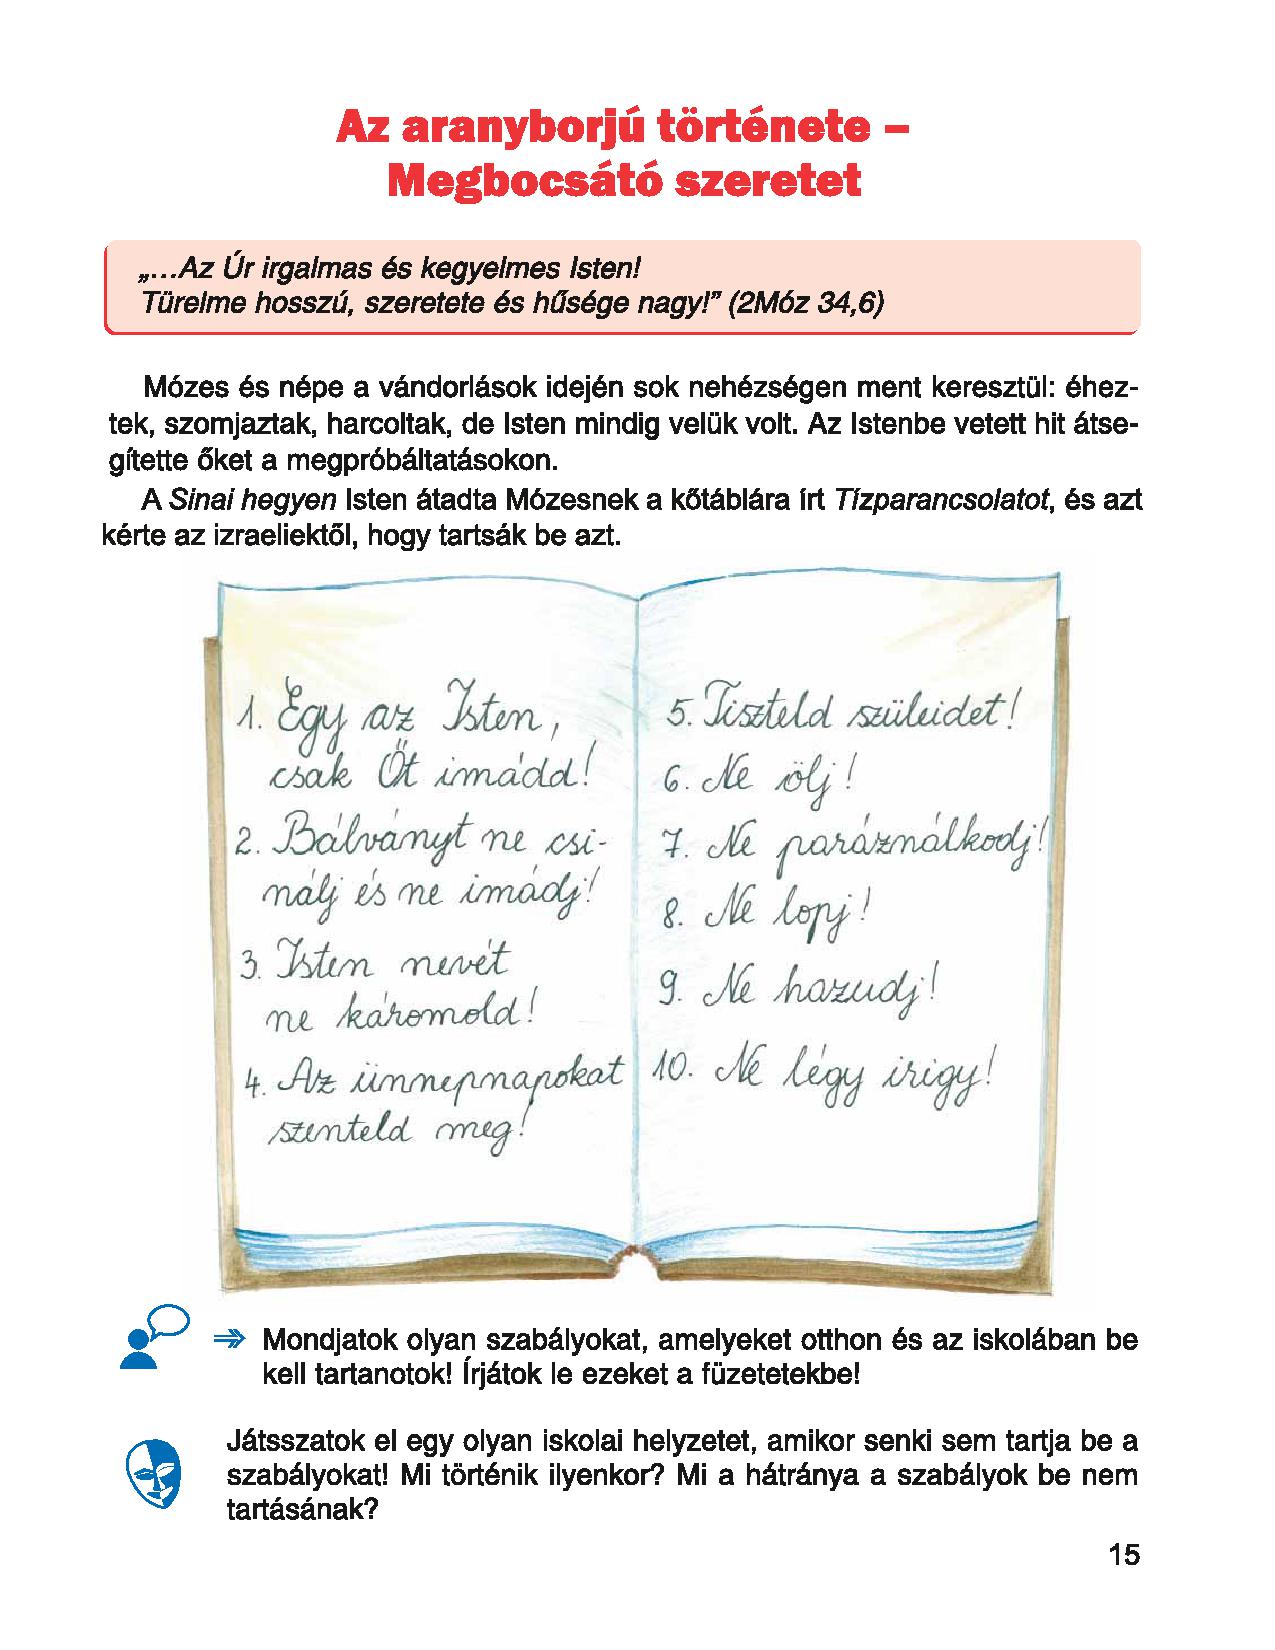 Az aranyborjú története –
Megbocsátó szeretet
„…Az Úr irgalmas és kegyelmes Isten!
Türelme hosszú, szeretete és hűsége nagy!” (2Móz 34,6)
Mózes és népe a vándorlások idején sok nehézségen ment keresztül: éhez-
tek, szomjaztak, harcoltak, de Isten mindig velük volt. Az Istenbe vetett hit átse-
gítette őket a megpróbáltatásokon.
A Sinai hegyen Isten átadta Mózesnek a kőtáblára írt Tízparancsolatot, és azt
kérte az izraeliektől, hogy tartsák be azt.
1. Egy az Isten,
csak Őt imádd!
2. Bálványt ne csi-
nálj és ne imádj!
3. Isten nevét
ne káromold!
4. Az ünnepnapokat
szenteld meg!
5. Tiszteld szüleidet!
6. Ne ölj!
7. Ne paráználkodj!
8. Ne lopj!
9. Ne hazudj!
10. Ne légy irigy!
Mondjatok olyan szabályokat, amelyeket otthon és az iskolában be
kell tartanotok! Írjátok le ezeket a füzetetekbe!
Játsszatok el egy olyan iskolai helyzetet, amikor senki sem tartja be a
szabályokat! Mi történik ilyenkor? Mi a hátránya a szabályok be nem
tartásának?
15